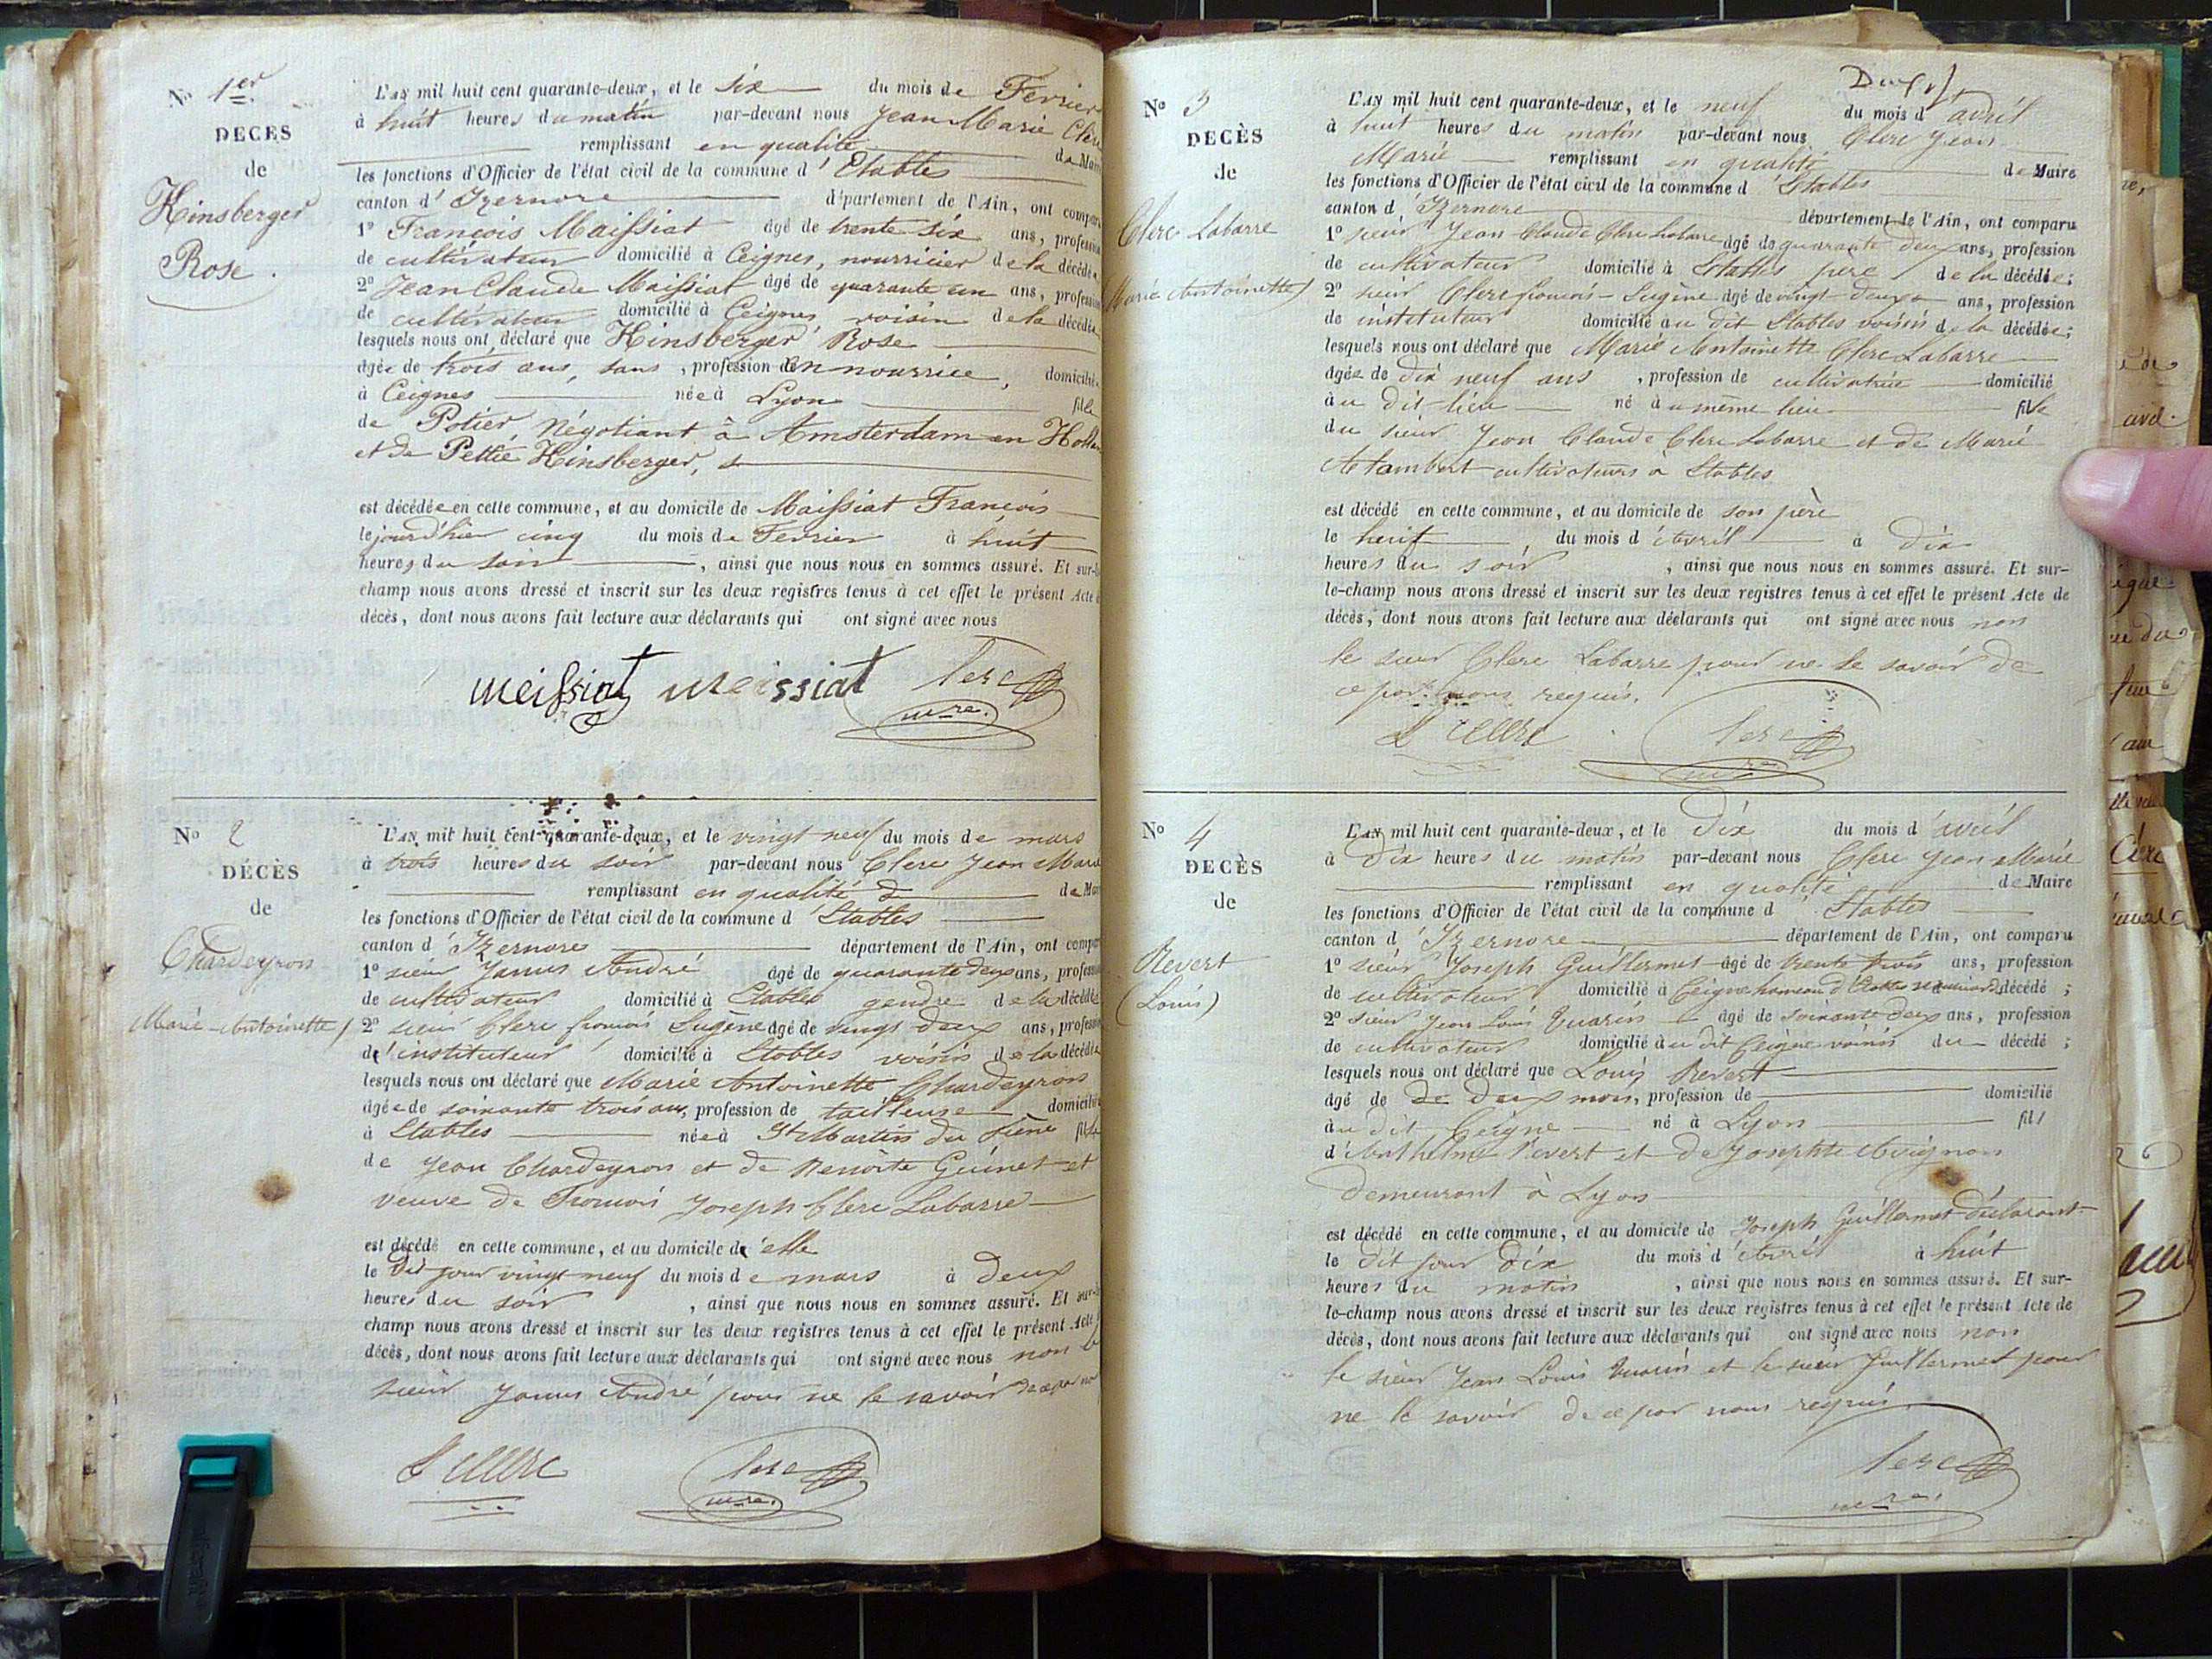 No 1er
DÉCÈS
de
Hinsberger
Rose.
L'AN mil huit cent quarante-deux, et le six du mois de Fevrier
à huit heures du matin par-devant nous Jean Marie Clerc
remplissant en qualité de Maire
les fonctions d'Officier de l'état civil de la commune d'Etables
canton d'Izernore département de l'Ain, ont comparu
1o François Maissiat âgé de trente six ans, profession
de cultivateur domicilié à Ceignes, nourricier de la décédée
2o Jean Claude Maissiat âgé de quarante un ans, profession
de cultivateur domicilié à Ceignes voisin de la décédée
lesquels nous ont déclaré que Hinsberger Rose
âgée de trois ans, sans, profession en nourrice, domiciliée
à Ceignes née à Lyon fille
de Potier Négotiant à Amsterdam en Holl
et de Pettié Hinsberger,
est décédée en cette commune, et au domicile de Maissiat François
le jourd'hier cinq du mois de Fevrier à huit
heures du soir, ainsi que nous nous en sommes assuré. Et sur-le
champ nous avons dressé et inscrit sur les deux registres tenus à cet effet le présent Acte
décès, dont nous avons fait lecture aux déclarants qui ont signé avec nous
meissiat meissiat Clerc
mre.
No 2
DÉCÈS
de
Chardeyron
Marie-Antoinette
L'AN mil huit cent quarante-deux, et le vingt neuf du mois de mars
à trois heures du soir par-devant nous Clerc Jean Marie
remplissant en qualité de Maire
les fonctions d'Officier de l'état civil de la commune d'Etables
canton d'Izernore département de l'Ain, ont comparu
1o sieur Janus André âgé de quarante deux ans, profession
de cultivateur domicilié à Etables gendre de la décédée
2o sieur Clerc françois Eugène âgé de vingt deux ans, profession
d'instituteur domicilié à Etables voisin de la décédée
lesquels nous ont déclaré que Marie Antoinette Chardeyron
âgée de soixante trois ans, profession de tailleuse domiciliée
à Etables née à St Martin du frêne fille
de Jean Chardeyron et de Benoite Guinet et
veuve de François Joseph Clerc Labarre
est décédé en cette commune, et au domicile d'elle
le dit jour vingt neuf du mois de mars à deux
heures du soir, ainsi que nous nous en sommes assuré. Et sur-le
champ nous avons dressé et inscrit sur les deux registres tenus à cet effet le présent Acte
décès, dont nous avons fait lecture aux déclarants qui ont signé avec nous non le
sieur Janus André pour ne le savoir de ce par nous
E Clerc Clerc
mre.
Deux
No 3
DÉCÈS
de
Clerc Labarre
Marie Antoinette
L'AN mil huit cent quarante-deux, et le neuf du mois d'avril
à huit heures du matin par-devant nous Clerc Jean
Marie remplissant en qualité de Maire
les fonctions d'Officier de l'état civil de la commune d'Etables
canton d'Izernore département de l'Ain, ont comparu
1o sieur Jean Claude Clerc Labarre âgé de quarante deux ans, profession
de cultivateur domicilié à Etables père de la décédée;
2o sieur Clerc françois-Eugène âgé de vingt deux ans, profession
de instituteur domicilié au dit Etables voisin de la décédée;
lesquels nous ont déclaré que Marie Antoinette Clerc Labarre
âgée de dix neuf ans, profession de cultivatrice domicilié
à u dit lieu né à u même lieu fille
du sieur Jean Claude Clerc Labarre et de Marie
Alambert cultivateurs à Etables
est décédé en cette commune, et au domicile de son père
le huit du mois d'avril à dix
heures du soir, ainsi que nous nous en sommes assuré. Et sur-
le-champ nous avons dressé et inscrit sur les deux registres tenus à cet effet le présent Acte de
décès, dont nous avons fait lecture aux déclarants qui ont signé avec nous non
le sieur Clerc Labarre pour ne le savoir de
ce par nous requis.
E Clerc Clerc
mre
No 4
DÉCÈS
de
Revert
(Louis)
L'AN mil huit cent quarante-deux, et le dix du mois d'avril
à dix heures du matin par-devant nous Clerc Jean Marie
remplissant en qualité de Maire
les fonctions d'Officier de l'état civil de la commune d'Etables
canton d'Izernore département de l'Ain, ont comparu
1o sieur Joseph Guillermet âgé de trente trois ans, profession
de cultivateur domicilié à Ceigne hameau d'Etables décédé;
2o sieur Jean Louis Quarin âgé de soixante deux ans, profession
de cultivateur domicilié à u dit Ceigne voisin du décédé;
lesquels nous ont déclaré que Louis Revert
âgé de de deux mois, profession de domicilié
à u dit Ceigne né à Lyon fils
d'Anthelme Revert et de Josephte Avignon
demeurant à Lyon
est décédé en cette commune, et au domicile de Joseph Guillermet déclarant
le dit jour dix du mois d'avril à huit
heures du matin, ainsi que nous nous en sommes assuré. Et sur-
le-champ nous avons dressé et inscrit sur les deux registres tenus à cet effet le présent Acte de
décès, dont nous avons fait lecture aux déclarants qui ont signé avec nous non
le sieur Jean Louis Quarin et le sieur Guillermet pour
ne le savoir de ce par nous requis.
Clerc
mre.